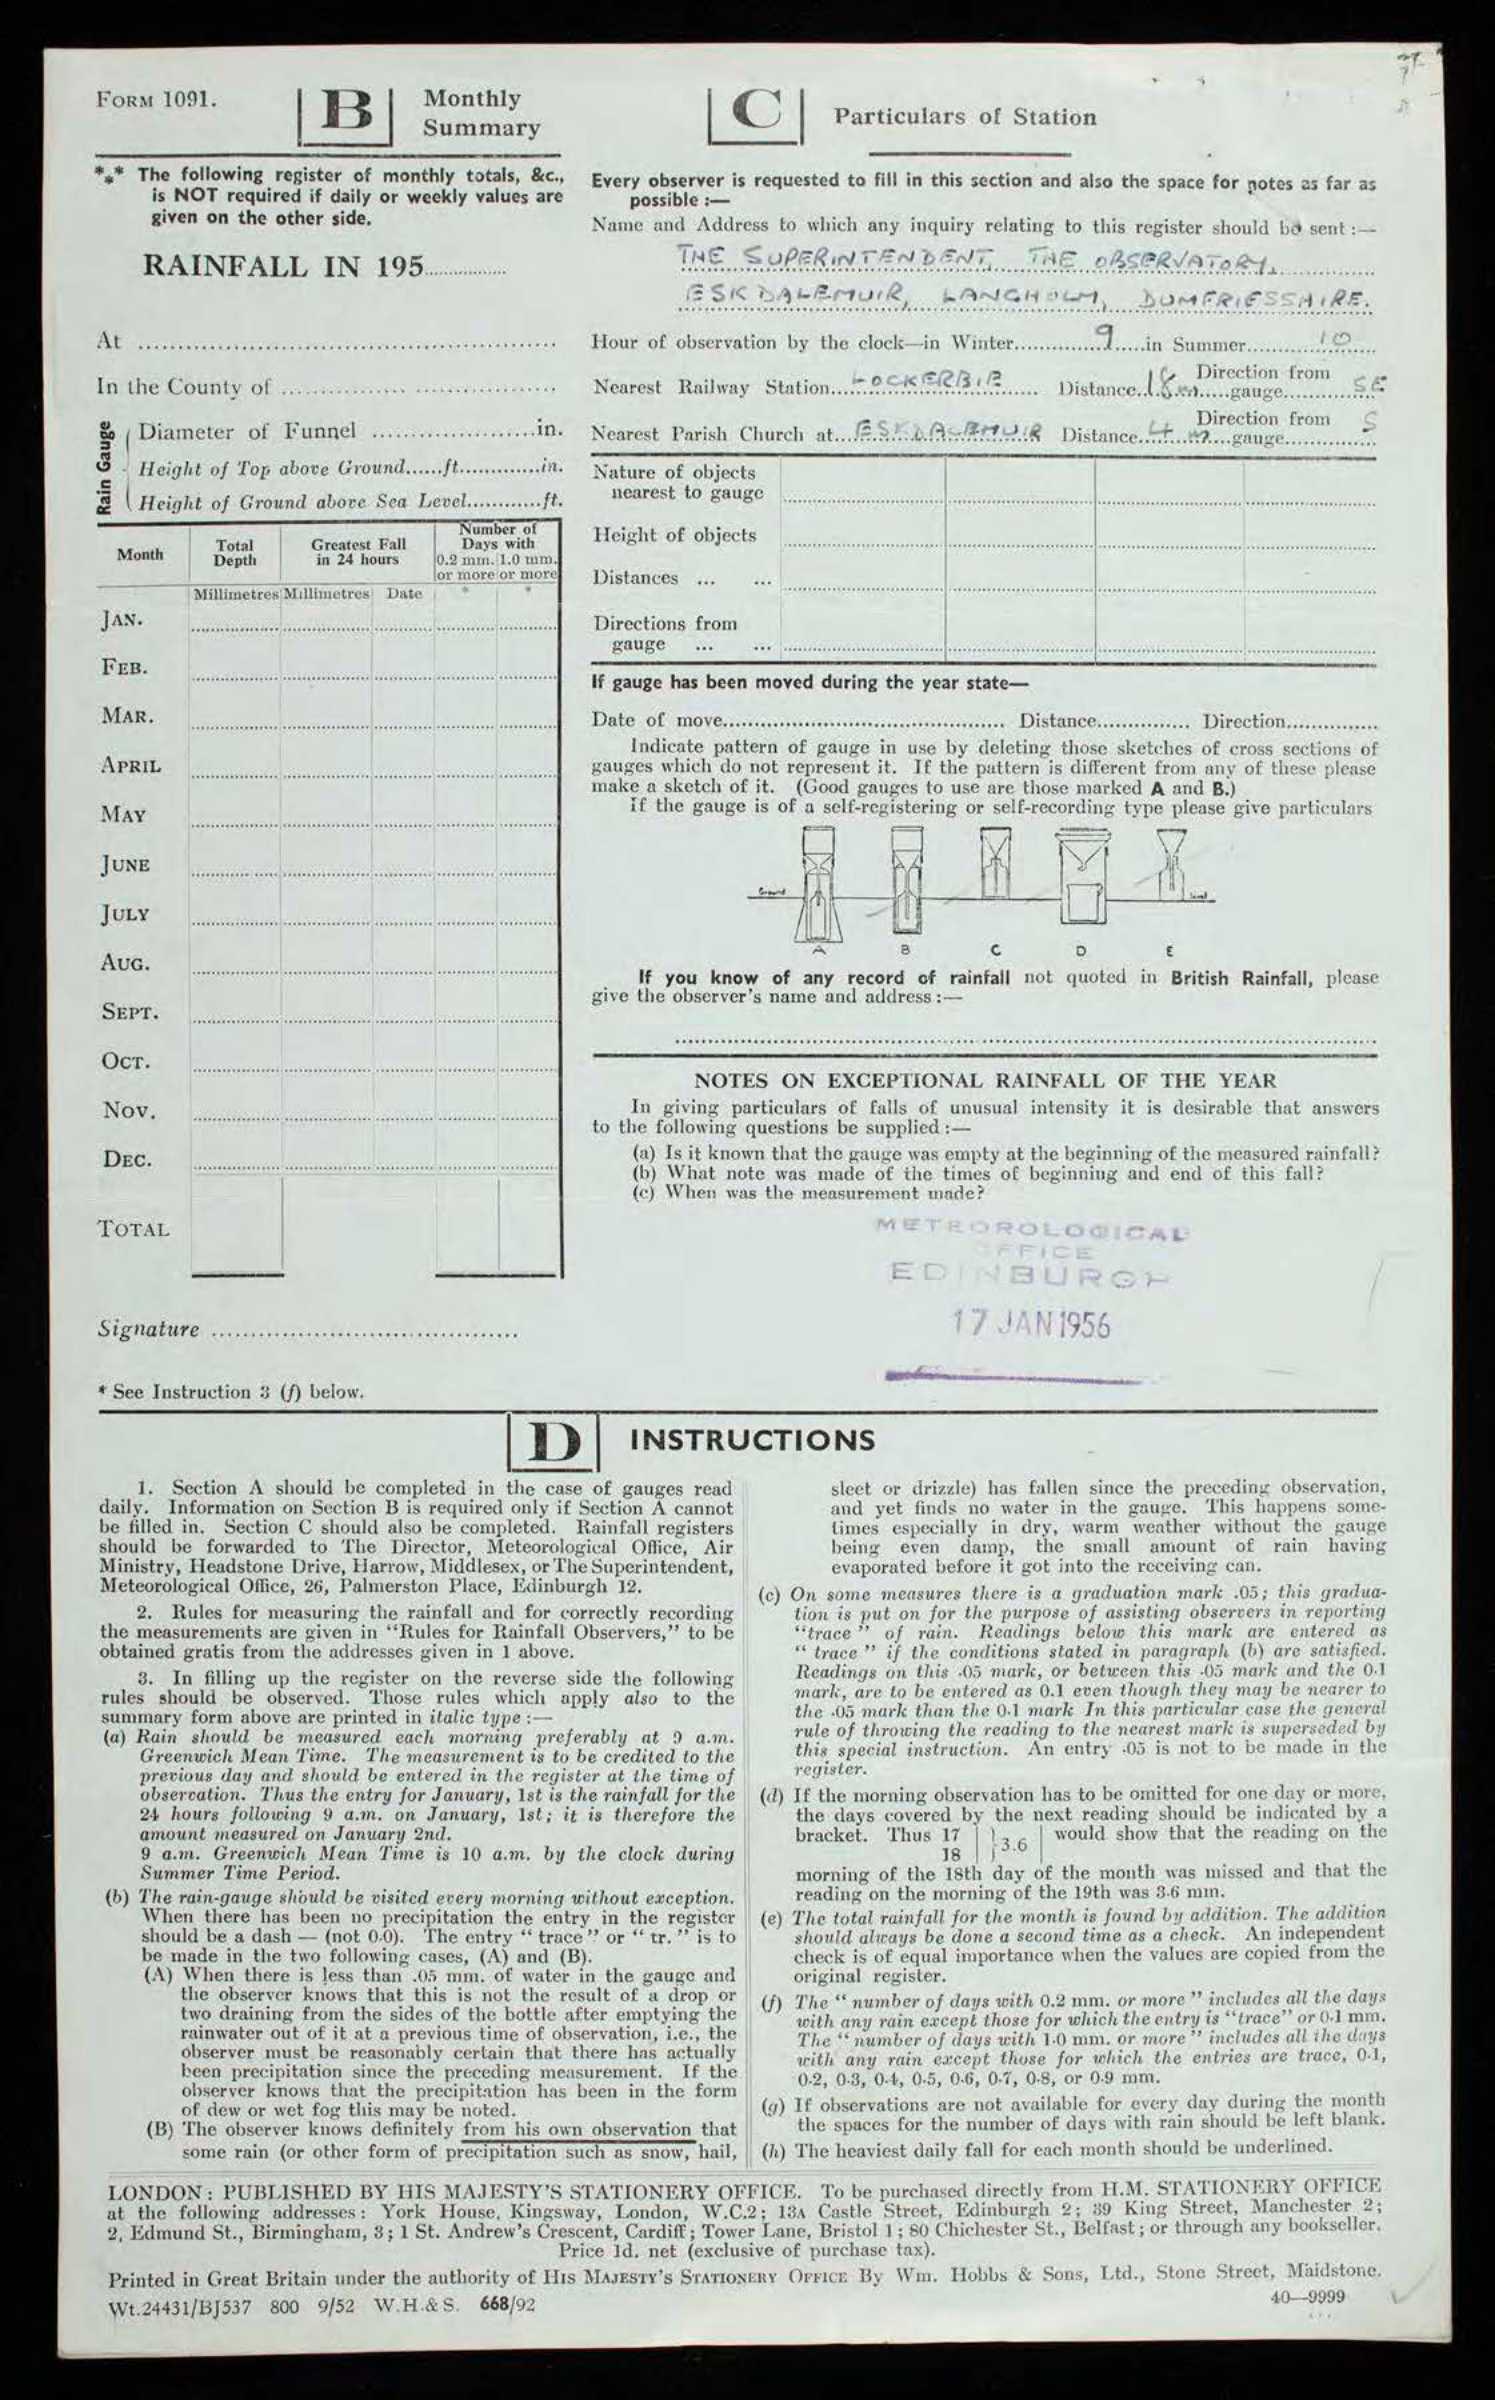 FORM 1091.
B
Monthly
Summary
*** The following register of monthly totals, &c.,
is NOT required if daily or weekly values are
given on the other side.
RAINFALL IN 195
At
In the County of
Rain Gauge
Diameter of Funnel in.
Height of Top above Ground ft. in.
Height of Ground above Sea Level ft.
Month Total Depth Greatest Fall in 24 hours Number of Days with
0.2 mm. or more 1.0 mm. or more
Millimetres Millimetres Date * *
JAN.
FEB.
MAR.
APRIL
MAY
JUNE
JULY
AUG.
SEPT.
OCT.
NOV.
DEC.
TOTAL
Signature
* See Instruction 3 (f) below.
C
Particulars of Station
Every observer is requested to fill in this section and also the space for notes as far as
possible :—
Name and Address to which any inquiry relating to this register should be sent :—
THE SUPERINTENDENT, THE OBSERVATORY,
ESKDALEMUIR, LANGHOLM, DUMFRIESSHIRE.
Hour of observation by the clock—in Winter 9 in Summer 10
Nearest Railway Station LOCKERBIE Distance 18 m Direction from gauge SE
Nearest Parish Church at ESKDALEMUIR Distance 4 m Direction from gauge S
Nature of objects
nearest to gauge
Height of objects
Distances ... ...
Directions from
gauge ... ...
If gauge has been moved during the year state—
Date of move Distance Direction
Indicate pattern of gauge in use by deleting those sketches of cross sections of
gauges which do not represent it. If the pattern is different from any of these please
make a sketch of it. (Good gauges to use are those marked A and B.)
If the gauge is of a self-registering or self-recording type please give particulars
Ground Level
A B C D E
If you know of any record of rainfall not quoted in British Rainfall, please
give the observer's name and address :—
NOTES ON EXCEPTIONAL RAINFALL OF THE YEAR
In giving particulars of falls of unusual intensity it is desirable that answers
to the following questions be supplied :—
(a) Is it known that the gauge was empty at the beginning of the measured rainfall?
(b) What note was made of the times of beginning and end of this fall?
(c) When was the measurement made?
METEOROLOGICAL
OFFICE
EDINBURGH
17 JAN 1956
D
INSTRUCTIONS
1. Section A should be completed in the case of gauges read
daily. Information on Section B is required only if Section A cannot
be filled in. Section C should also be completed. Rainfall registers
should be forwarded to The Director, Meteorological Office, Air
Ministry, Headstone Drive, Harrow, Middlesex, or The Superintendent,
Meteorological Office, 26, Palmerston Place, Edinburgh 12.
2. Rules for measuring the rainfall and for correctly recording
the measurements are given in "Rules for Rainfall Observers," to be
obtained gratis from the addresses given in 1 above.
3. In filling up the register on the reverse side the following
rules should be observed. Those rules which apply also to the
summary form above are printed in italic type :—
(a) Rain should be measured each morning preferably at 9 a.m.
Greenwich Mean Time. The measurement is to be credited to the
previous day and should be entered in the register at the time of
observation. Thus the entry for January, 1st is the rainfall for the
24 hours following 9 a.m. on January, 1st; it is therefore the
amount measured on January 2nd.
9 a.m. Greenwich Mean Time is 10 a.m. by the clock during
Summer Time Period.
(b) The rain-gauge should be visited every morning without exception.
When there has been no precipitation the entry in the register
should be a dash — (not 0.0). The entry "trace" or "tr." is to
be made in the two following cases, (A) and (B).
(A) When there is less than .05 mm. of water in the gauge and
the observer knows that this is not the result of a drop or
two draining from the sides of the bottle after emptying the
rainwater out of it at a previous time of observation, i.e., the
observer must be reasonably certain that there has actually
been precipitation since the preceding measurement. If the
observer knows that the precipitation has been in the form
of dew or wet fog this may be noted.
(B) The observer knows definitely from his own observation that
some rain (or other form of precipitation such as snow, hail,
sleet or drizzle) has fallen since the preceding observation,
and yet finds no water in the gauge. This happens some-
times especially in dry, warm weather without the gauge
being even damp, the small amount of rain having
evaporated before it got into the receiving can.
(c) On some measures there is a graduation mark .05; this gradua-
tion is put on for the purpose of assisting observers in reporting
"trace" of rain. Readings below this mark are entered as
"trace" if the conditions stated in paragraph (b) are satisfied.
Readings on this .05 mark, or between this .05 mark and the 0.1
mark, are to be entered as 0.1 even though they may be nearer to
the .05 mark than the 0.1 mark In this particular case the general
rule of throwing the reading to the nearest mark is superseded by
this special instruction. An entry .05 is not to be made in the
register.
(d) If the morning observation has to be omitted for one day or more,
the days covered by the next reading should be indicated by a
bracket. Thus 17 18 } 3.6 would show that the reading on the
morning of the 18th day of the month was missed and that the
reading on the morning of the 19th was 3.6 mm.
(e) The total rainfall for the month is found by addition. The addition
should always be done a second time as a check. An independent
check is of equal importance when the values are copied from the
original register.
(f) The "number of days with 0.2 mm. or more" includes all the days
with any rain except those for which the entry is "trace" or 0.1 mm.
The "number of days with 1.0 mm. or more" includes all the days
with any rain except those for which the entries are trace, 0.1,
0.2, 0.3, 0.4, 0.5, 0.6, 0.7, 0.8, or 0.9 mm.
(g) If observations are not available for every day during the month
the spaces for the number of days with rain should be left blank.
(h) The heaviest daily fall for each month should be underlined.
LONDON : PUBLISHED BY HIS MAJESTY'S STATIONERY OFFICE. To be purchased directly from H.M. STATIONERY OFFICE
at the following addresses : York House, Kingsway, London, W.C.2; 13A Castle Street, Edinburgh 2; 39 King Street, Manchester 2;
2, Edmund St., Birmingham, 3; 1 St. Andrew's Crescent, Cardiff; Tower Lane, Bristol 1; 80 Chichester St., Belfast; or through any bookseller.
Price 1d. net (exclusive of purchase tax).
Printed in Great Britain under the authority of HIS MAJESTY'S STATIONERY OFFICE By Wm. Hobbs & Sons, Ltd., Stone Street, Maidstone.
Wt.24431/BJ537 800 9/52 W.H.& S. 668/92
40—9999